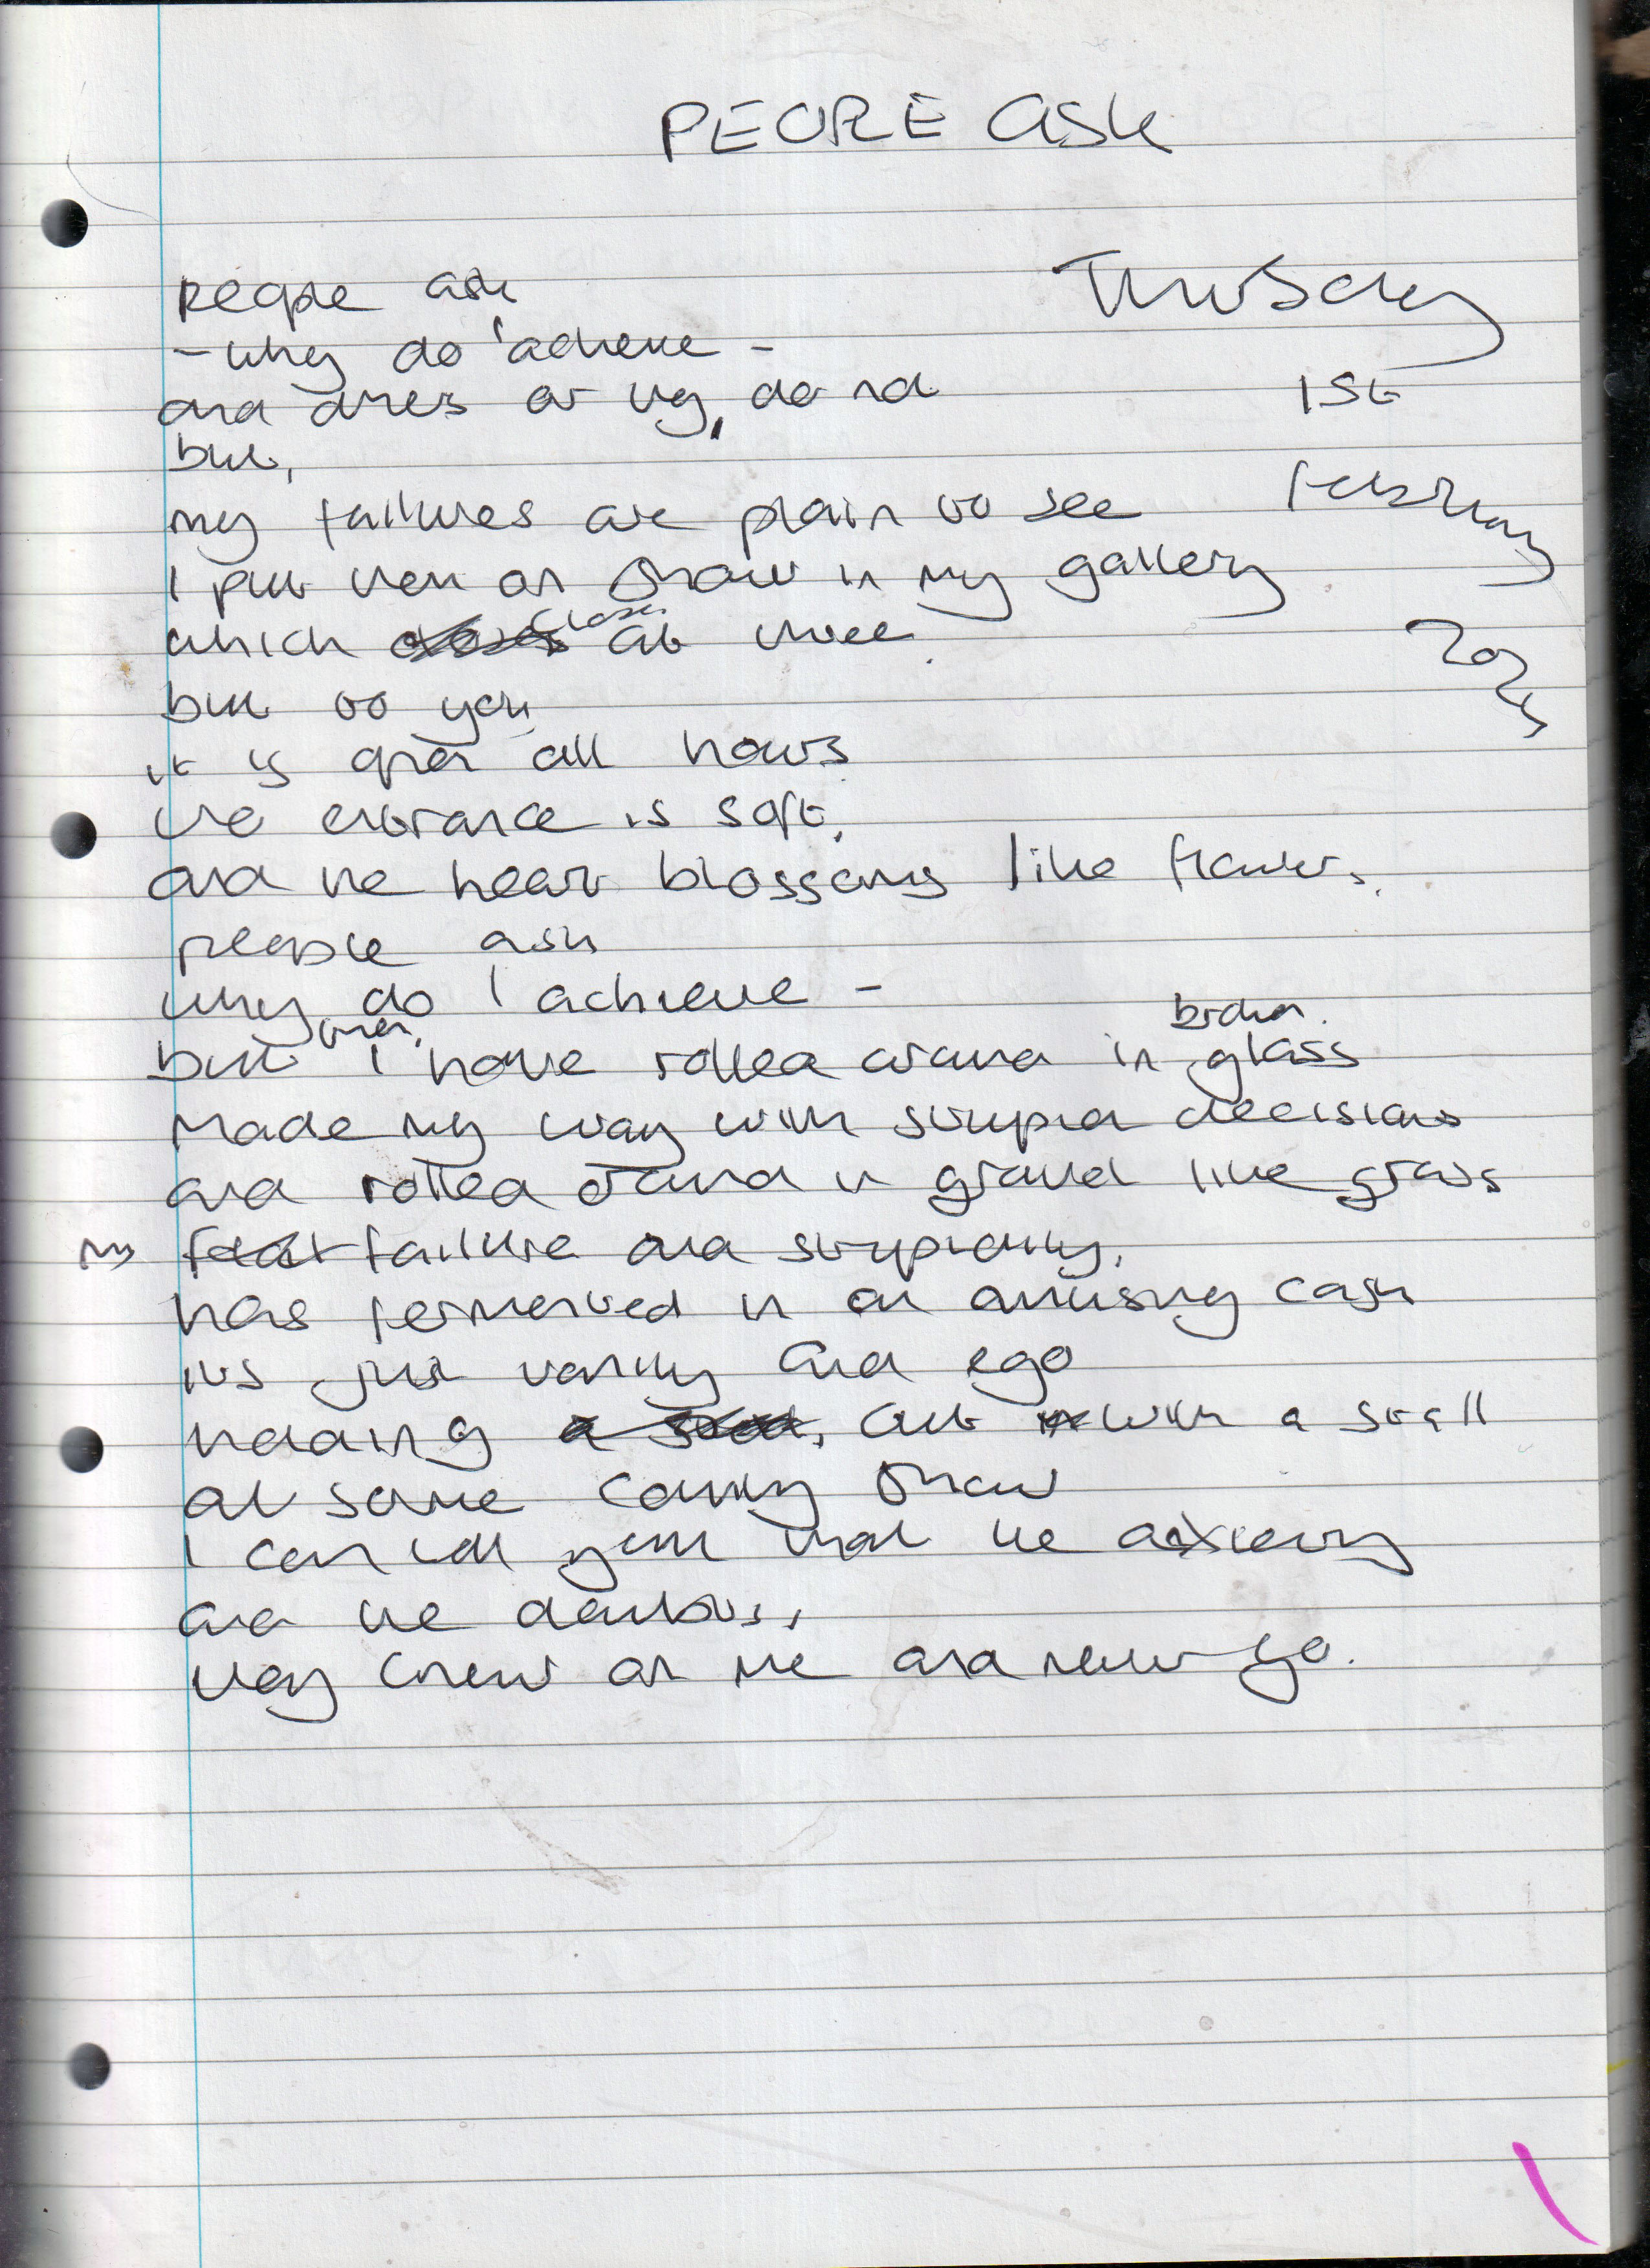 PEOPLE ASK
Thursday
1st
February
2024
people ask
- why do I achieve -
and others or why I do not
but,
my failures are plain to see
I put them on show in my gallery
which closes at three.
but to you
it is open all hours
the entrance is soft,
and the heart blossoms like flowers.
people ask
why do I achieve -
but then I have rolled around in broken glass
Made my way with stupid decisions
and rolled around in gravel like grass
my failure and stupidity,
has fermented in an amusing cask
its just vanity and ego
heading out with a stall
at some county show
I can tell you that the anxiety
and the doubts,
they chew on me and never go.